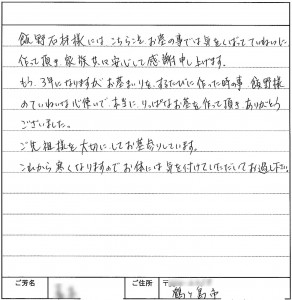 飯野石材様には、こちらこそお墓の事では気をくばっていねいに
作って頂き家族共に安心して感謝申し上げます。
もう、3年になりますがお墓まいりをするたびに作った時の事、飯野様
のていねいな心使いで、本当に、りっぱなお墓を作って頂きありがとう
ございました。
ご先祖様を大切にしてお墓守りしています。
これから寒くなりますのでお体には気を付けていただいてお過し下さい。
ご芳名
ご住所
〒
鶴ヶ島市